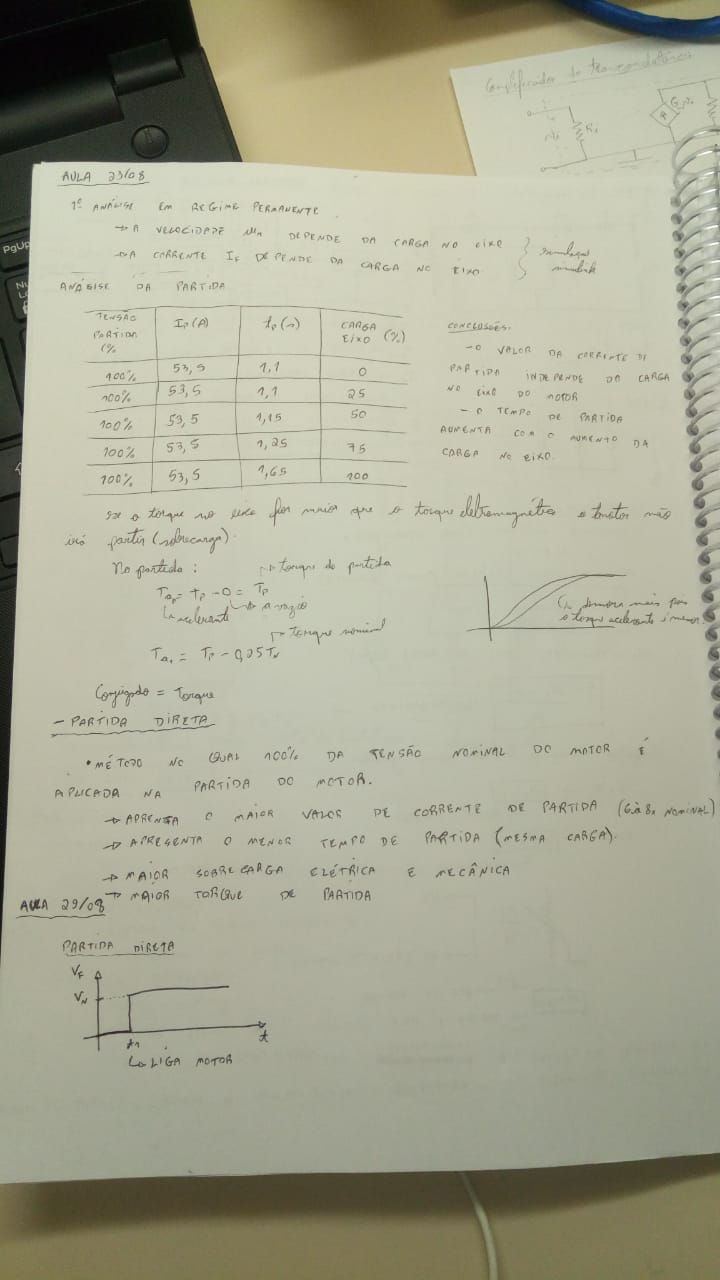 PgUp
Amplificador de transcondutância
Ri
AULA 23/08
1º ANÁLISE EM REGIME PERMANENTE
→ A VELOCIDADE DEPENDE DA CARGA NO EIXO
→ A CORRENTE IF DEPENDE DA CARGA NO EIXO
simulaçao
simulink
ANÁLISE DA PARTIDA
TENSÃO PARTIDA (% IP (A) tp (s) CARGA EIXO (%)
100% 53,5 1,1 0
100% 53,5 1,1 25
100% 53,5 1,15 50
100% 53,5 1,25 75
100% 53,5 1,65 100
CONCLUSÕES:
- O VALOR DA CORRENTE DE
PARTIDA INDEPENDE DA CARGA
NO EIXO DO MOTOR
- O TEMPO DE PARTIDA
AUMENTA COM O AUMENTO DA
CARGA NO EIXO.
Se o torque no eixo for maior que o torque eletromagnético o motor não
irá partir (sobrecarga).
Na partida:
→ torque de partida
Tao = tp - 0 = Tp
↳ acelerante
↳ a vazio
→ torque nominal
Ta1 = Tp - 0,25TN
↳ demora mais pois
o torque acelerante é menor.
Conjugado = Torque
- PARTIDA DIRETA
• MÉTODO NO QUAL 100% DA TENSÃO NOMINAL DO MOTOR É
APLICADA NA PARTIDA DO MOTOR.
→ APRENTA O MAIOR VALOR DE CORRENTE DE PARTIDA (6 à 8x NOMINAL)
→ APRESENTA O MENOR TEMPO DE PARTIDA (MESMA CARGA).
→ MAIOR SOBRECARGA ELÉTRICA E MECÂNICA
→ MAIOR TORQUE DE PARTIDA
AULA 29/08
PARTIDA DIRETA
VF
VN
t1
t
↳ LIGA MOTOR